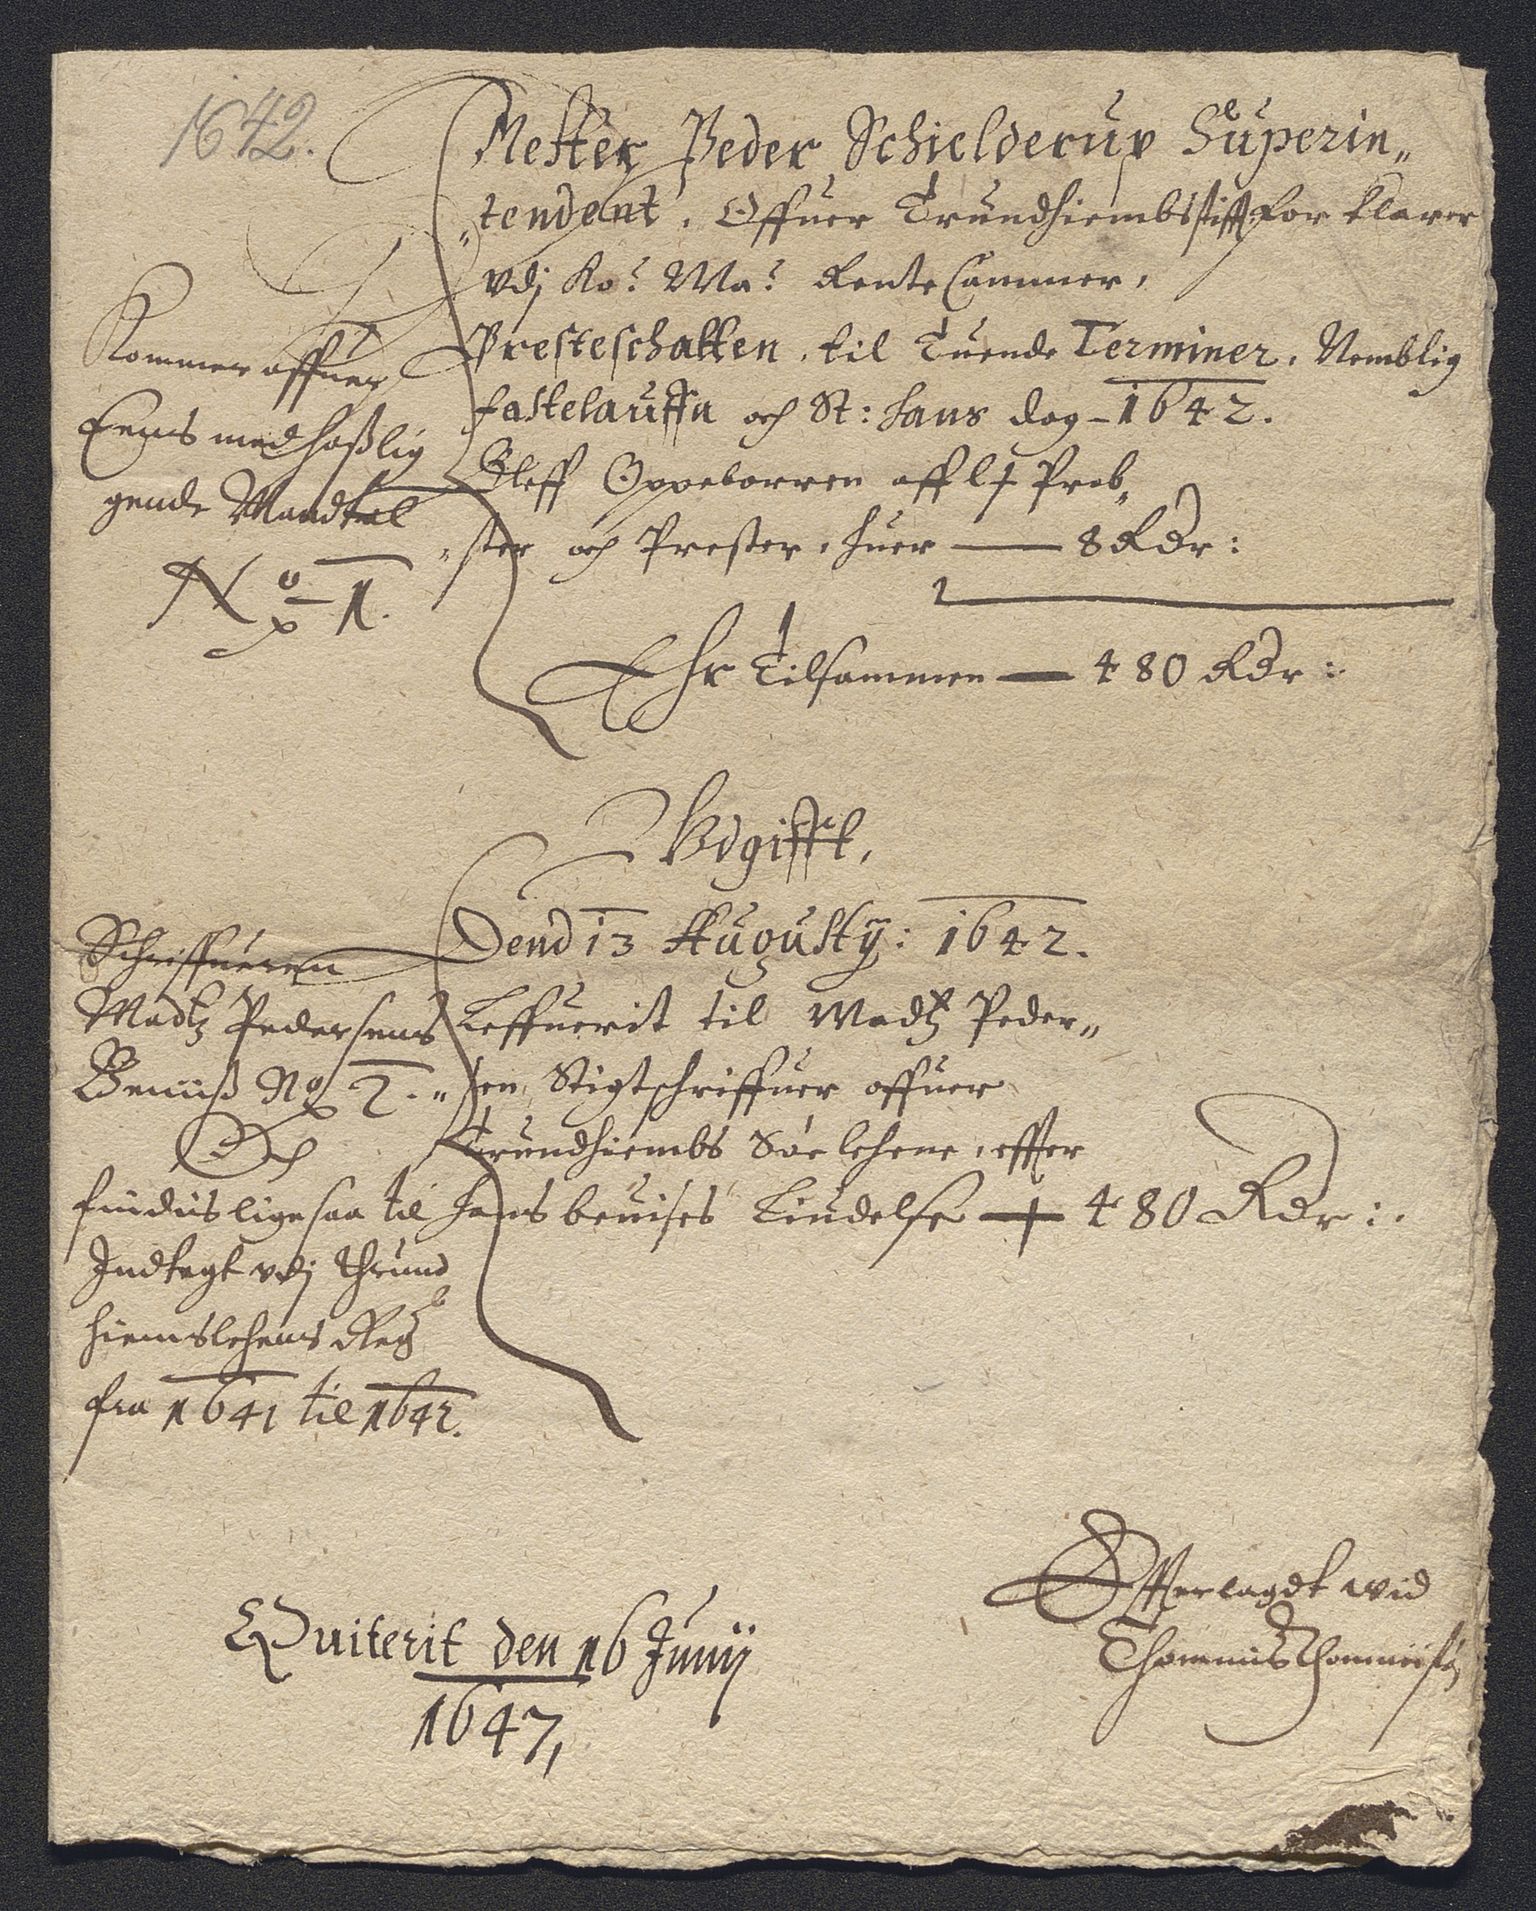 1642.
Mester Peder Schielderup Superin„
„tendent, Offuer Trundhiembs stifft for klarer
vdj Ko: Ma: Rente Cammer,
Presteschatten, til Tuende Terminer, Nemblig
fastelauffn och St: Hans dag 1642.
Bleff Oppeborren aff Prob„
„ster och Prester, huer — 8 Rdr:
Ehr Tilsammen — 480 Rdr:
Kommer offuer
Eens med hoßlig
gende Mandtal
No 1.
Vdgifft,
Dend 13 Augustij: 1642.
Leffuerit til Madtz Peder„
„sen, Stigtschriffuer offuer
Trundhiembs Søe lehene, effter
hans beuises Liudelse — 480 Rdr:
Schriffueren
Madtz Pedersens
Beuiiß No 2.
Och
findiis ligesaa til
Indtegt vdj Thrund
hiemslehens Regb
fra 1641 til 1642.
Offuerlagdt wid
Thommis Thommisøn
Quiterit den 16 Junij
1647,